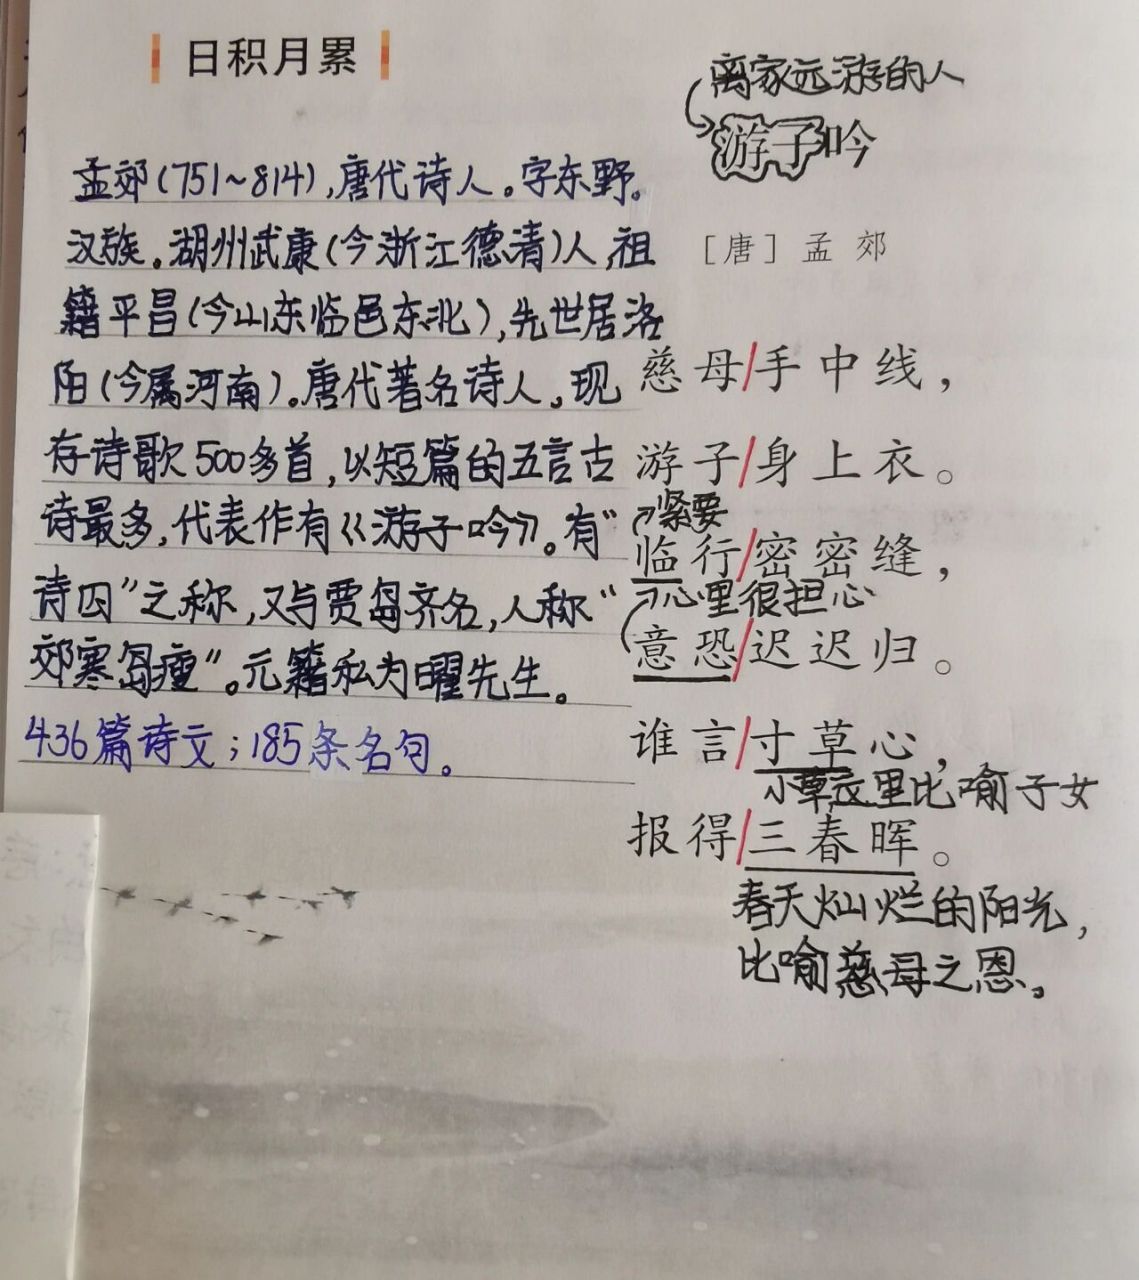 日积月累
孟郊(751~814),唐代诗人。字东野。
汉族。湖州武康(今浙江德清)人,祖
籍平昌(今山东临邑东北),先世居洛
阳(今属河南)。唐代著名诗人。现
存诗歌500多首,以短篇的五言古
诗最多,代表作有《游子吟》。有"
诗囚"之称,又与贾岛齐名,人称"
郊寒岛瘦"。元籍私为曜先生。
436篇诗文;185条名句。
离家远游的人
游子吟
[唐] 孟郊
慈母/手中线,
游子/身上衣。
紧要
临行/密密缝,
心里很担心
意恐/迟迟归。
谁言/寸草心,
小草这里比喻子女
报得/三春晖。
春天灿烂的阳光,
比喻慈母之恩。